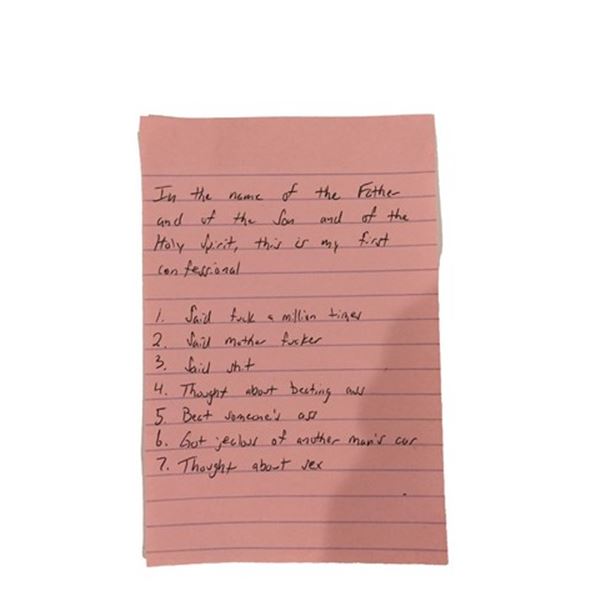 In the name of the Father
and of the Son and of the
Holy Spirit, this is my first
confessional
1. Said fuck a million times
2. Said mother fucker
3. Said shit
4. Thought about beating ass
5. Beat someone's ass
6. Got jealous of another man's car
7. Thought about sex